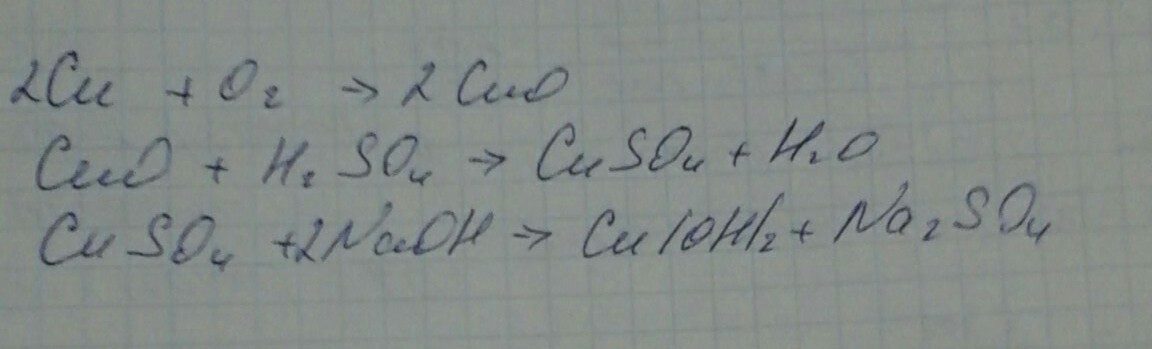 2Cu + O₂ → 2CuO
CuO + H₂SO₄ → CuSO₄ + H₂O
CuSO₄ + 2NaOH → Cu(OH)₂ + Na₂SO₄